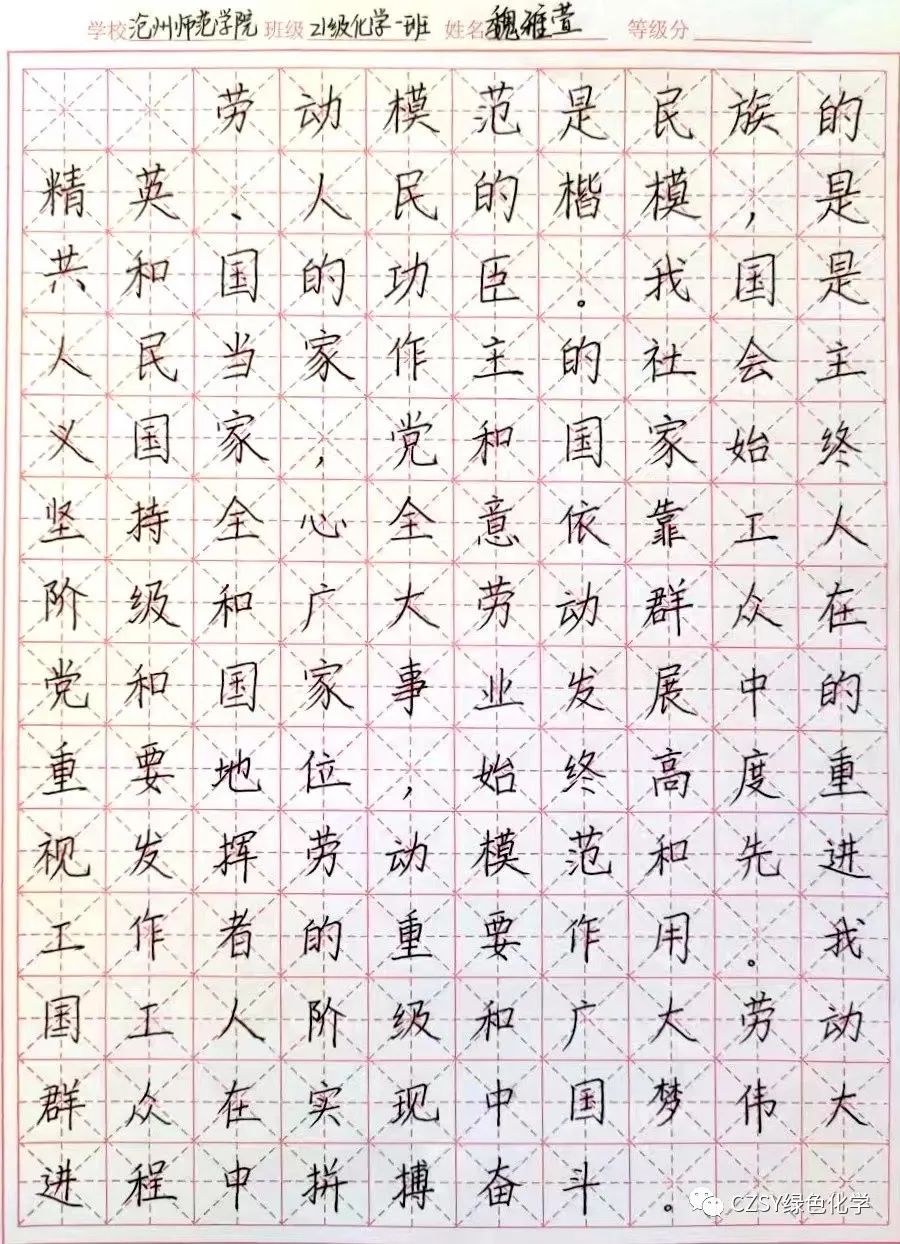 学校 沧州师范学院 班级 21级化学一班 姓名 魏雅萱 等级分
劳动模范是民族的
精英、人民的楷模，是
共和国的功臣。我国是
人民当家作主的社会主
义国家，党和国家始终
坚持全心全意依靠工人
阶级和广大劳动群众在
党和国家事业发展中的
重要地位，始终高度重
视发挥劳动模范和先进
工作者的重要作用。我
国工人阶级和广大劳动
群众在实现中国梦伟大
进程中拼搏奋斗。
CZSY绿色化学